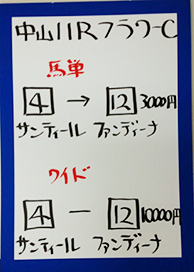 中山11RフラワーC
馬単
4 → 12 3000円
サンティール ファンディーナ
ワイド
4 － 12 10000円
サンティール ファンディーナ